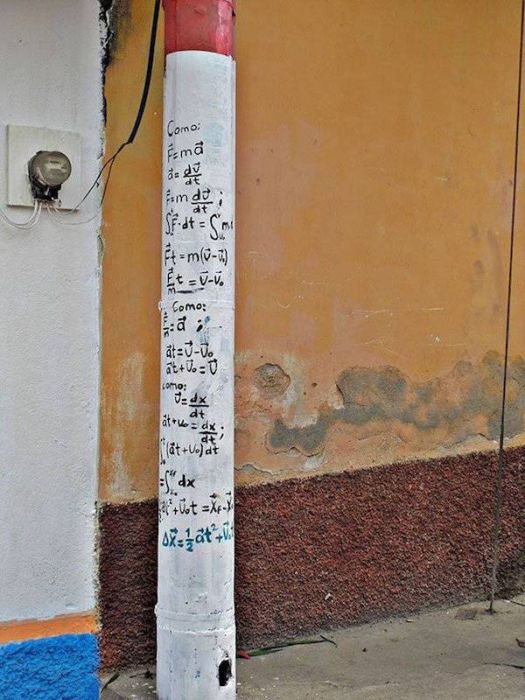 Como:
F⃗=ma⃗
a⃗=dv⃗/dt
F⃗=m dv⃗/dt;
∫F⃗·dt=∫m
F⃗t=m(v⃗-v⃗₀)
F⃗/m t=v⃗-v⃗₀
Como:
F⃗/m=a⃗;
a⃗t=v⃗-v⃗₀
a⃗t+v⃗₀=v⃗
como:
v⃗=dx⃗/dt
a⃗t+v₀=dx⃗/dt;
∫(a⃗t+v⃗₀)dt
=∫dx
t²+v⃗₀t=x⃗f-x⃗
Δx⃗=½a⃗t²+v⃗₀t